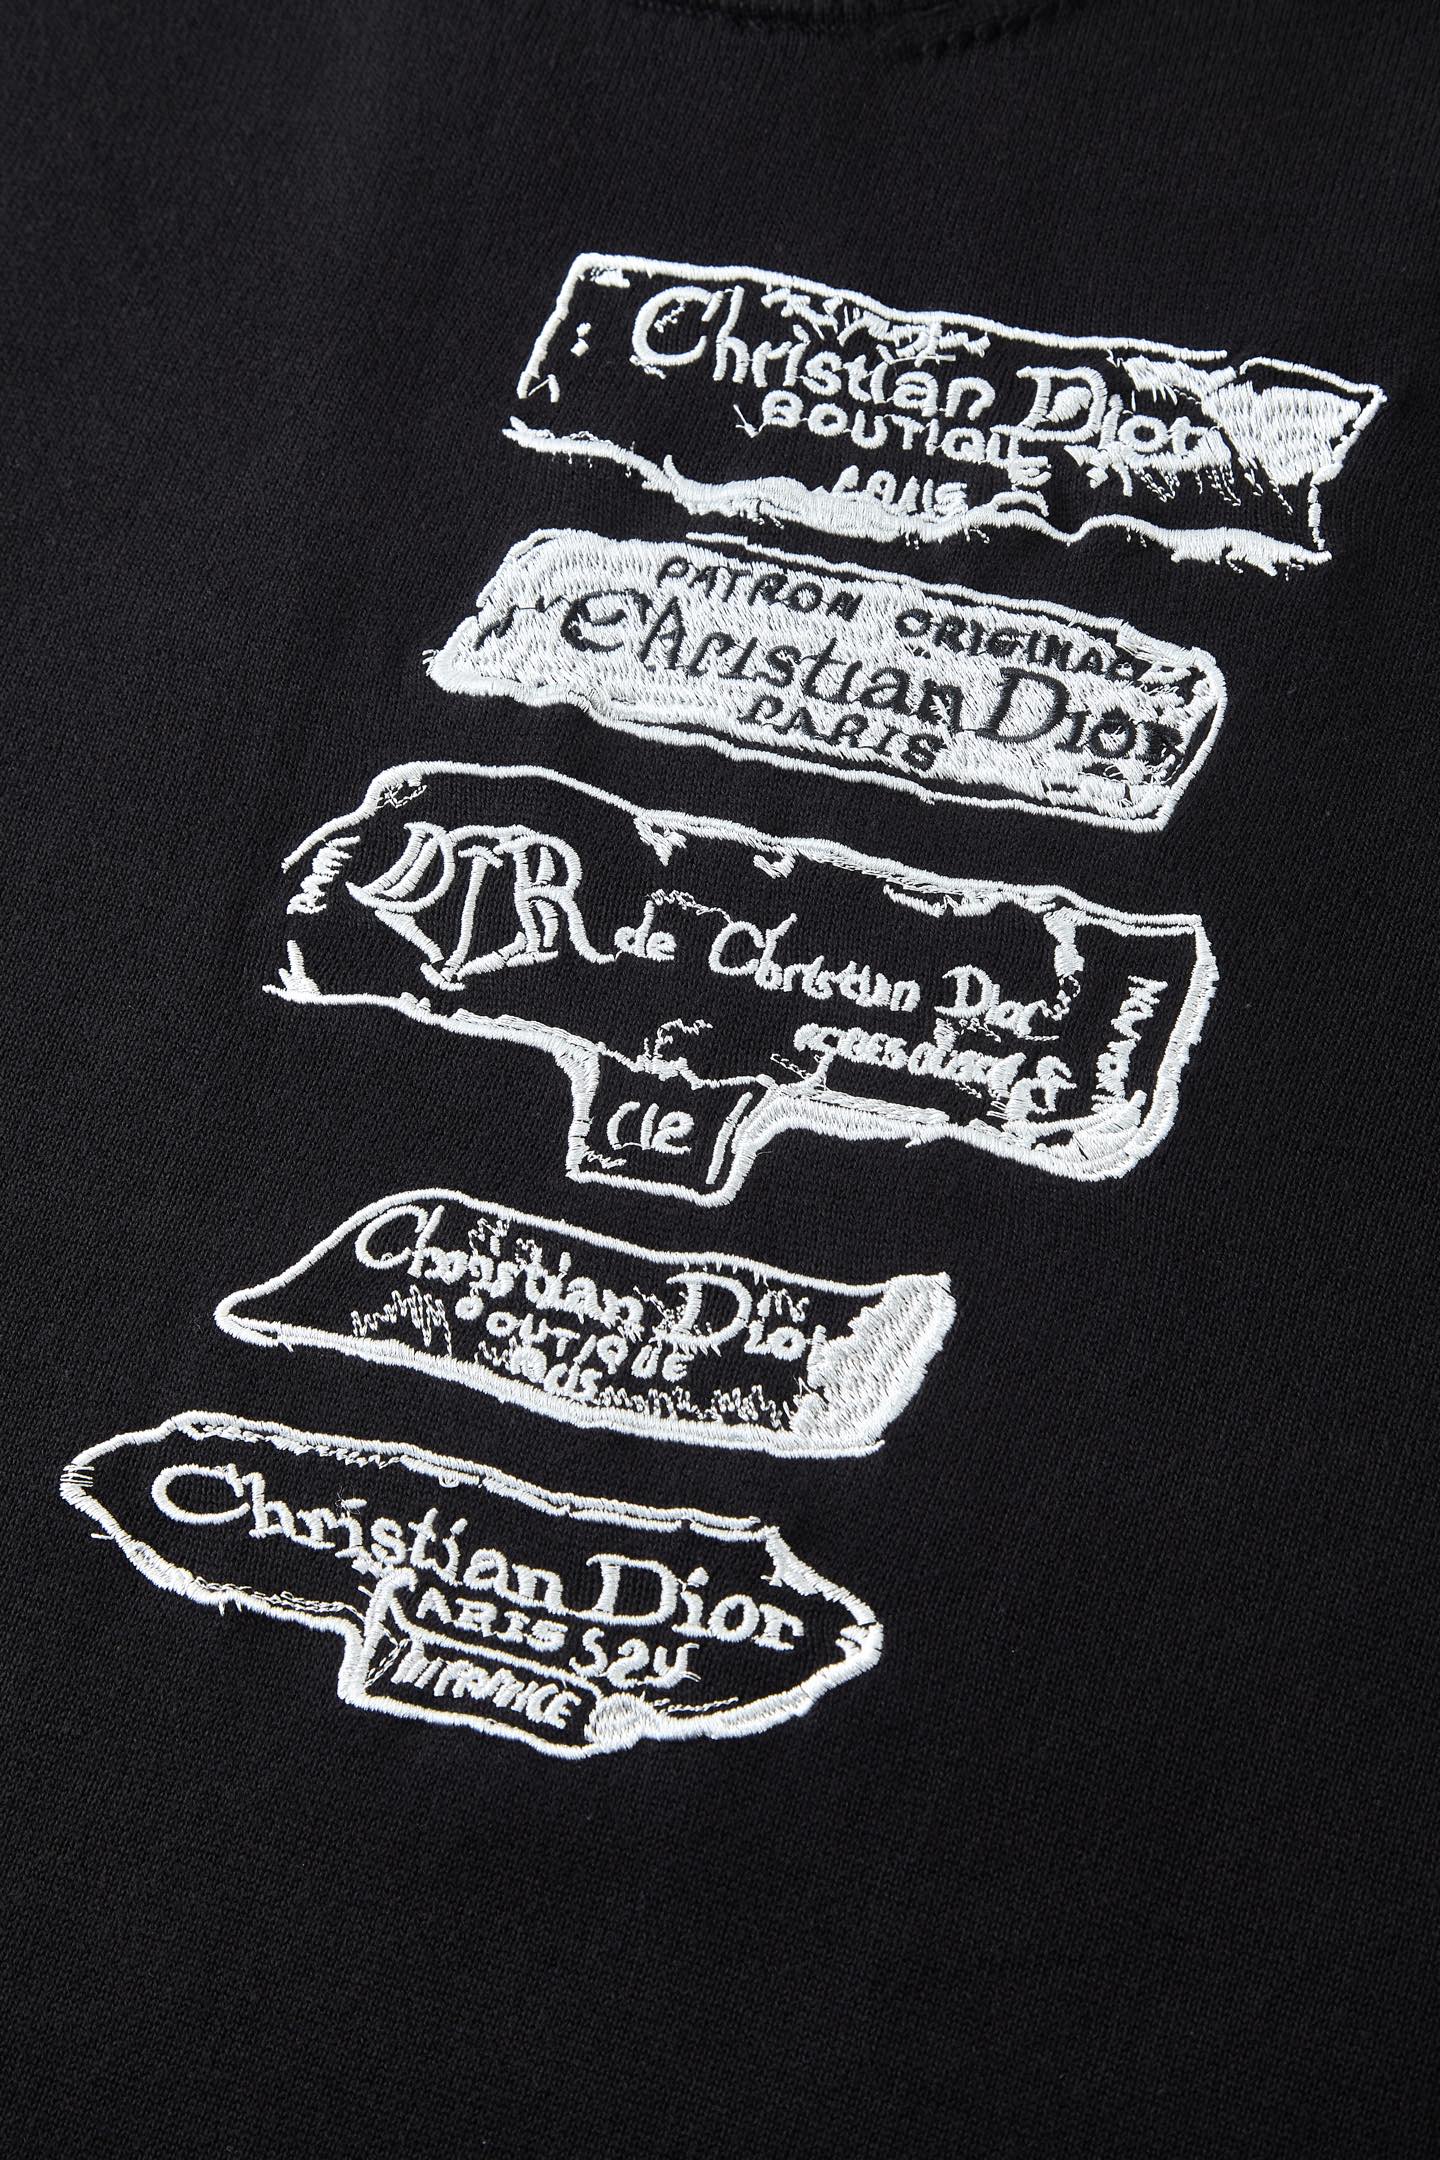 Christian Dior
BOUTIQUE
PATRON ORIGINAL
Christian Dior
PARIS
de Christian Dior
Christian Dior
BOUTIQUE
Christian Dior
PARIS
FRANCE